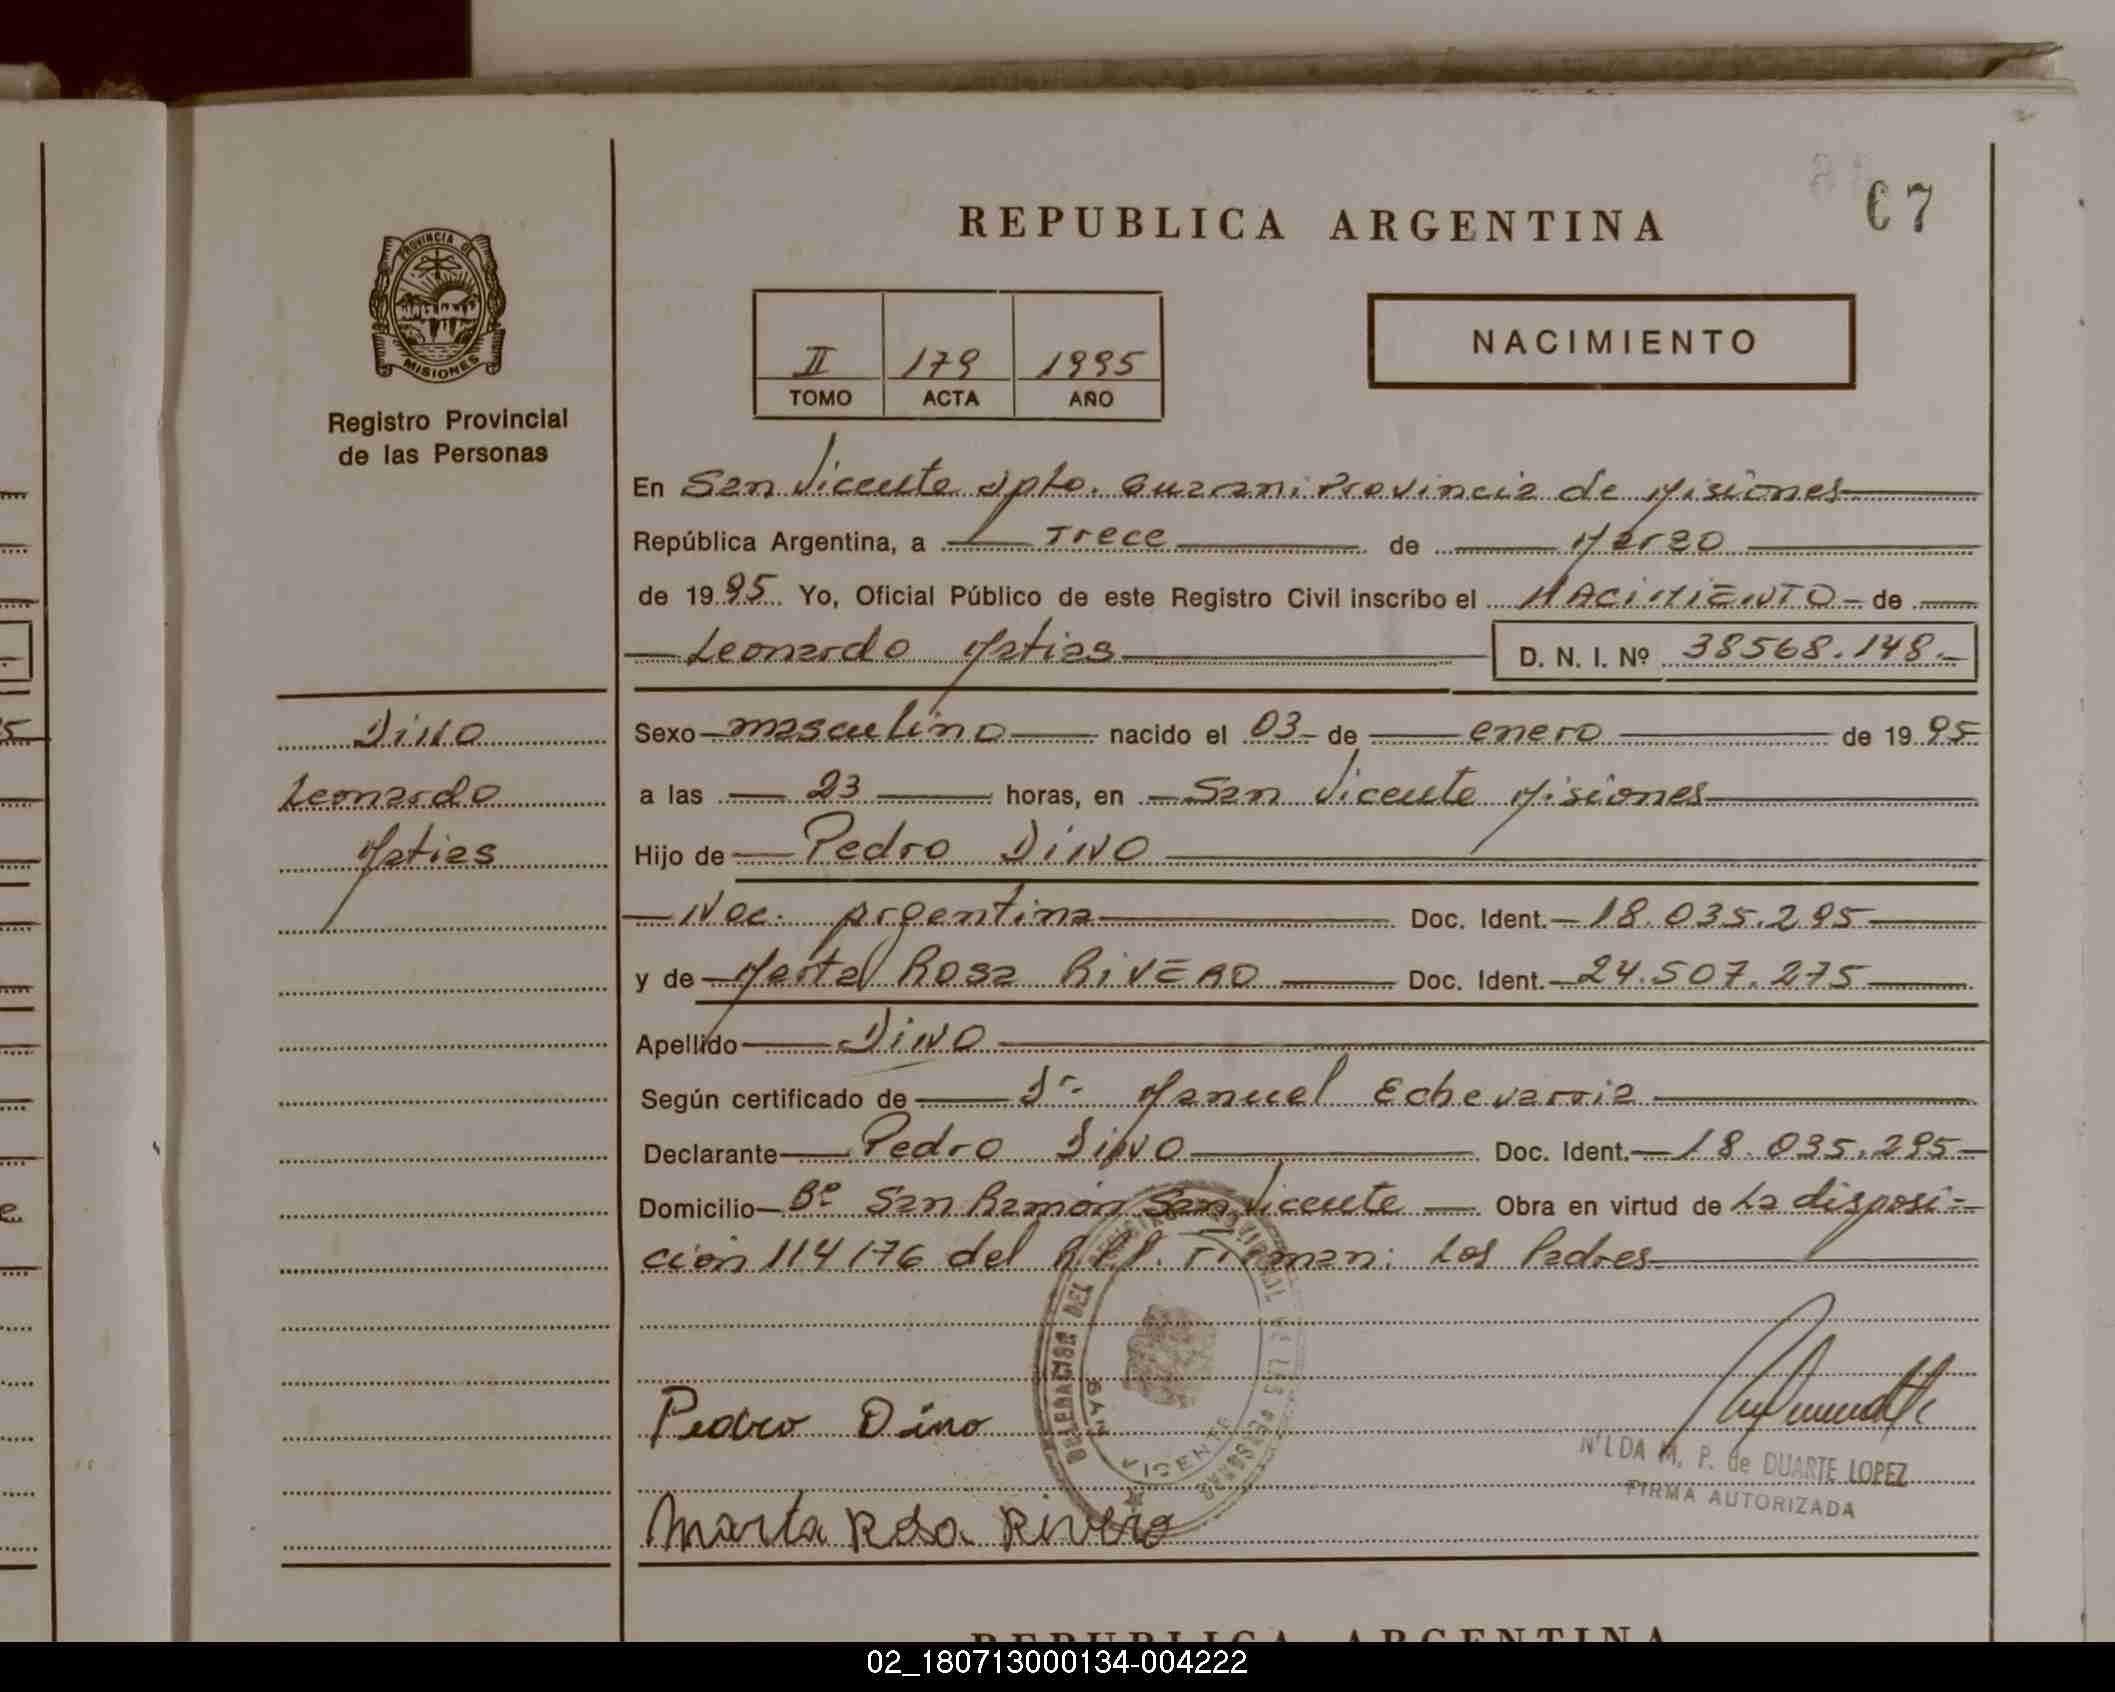 REPUBLICA ARGENTINA
67
PROVINCIA DE
MISIONES
Registro Provincial
de las Personas
II 179 1995
TOMO ACTA AÑO
NACIMIENTO
En San Vicente Dpto. Guarani Provincia de Misiones
República Argentina, a Trece de Marzo
de 1995 Yo, Oficial Público de este Registro Civil inscribo el NACIMIENTO de
Leonardo Matias D. N. I. Nº 38568.148.-
Dino
Leonardo
Matias
Sexo masculino nacido el 03 de enero de 1995
a las 23 horas, en San Vicente Misiones
Hijo de Pedro DINO
Nac. Argentina Doc. Ident. 18.035.295
y de Marta Rosa RIVERO Doc. Ident. 24.507.275
Apellido DINO
Según certificado de Dr. Manuel Echevarria
Declarante Pedro DINO Doc. Ident. 18.035.295
Domicilio Bº San Ramón San Vicente Obra en virtud de La disposi-
ción 114/76 del R.P.P. Firman: Los Padres
DELEGACION DEL REGISTRO PROVINCIAL DE LAS PERSONAS
SAN VICENTE
Pedro Dino
NILDA M. P. de DUARTE LOPEZ
FIRMA AUTORIZADA
Marta Rosa Rivero
REPUBLICA ARGENTINA
02_180713000134-004222